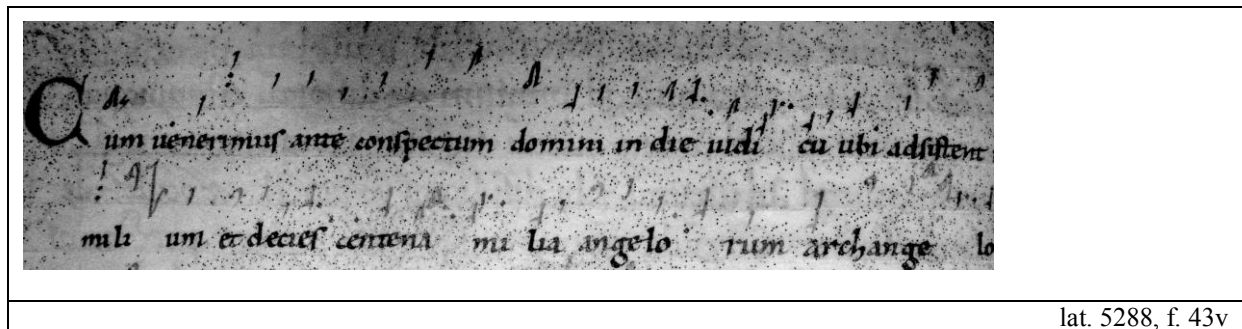 Cum uenerimus ante conspectum domini in die iudi cii ubi adsistent
mili um et decies centena mi lia angelo rum archange lo
lat. 5288, f. 43v